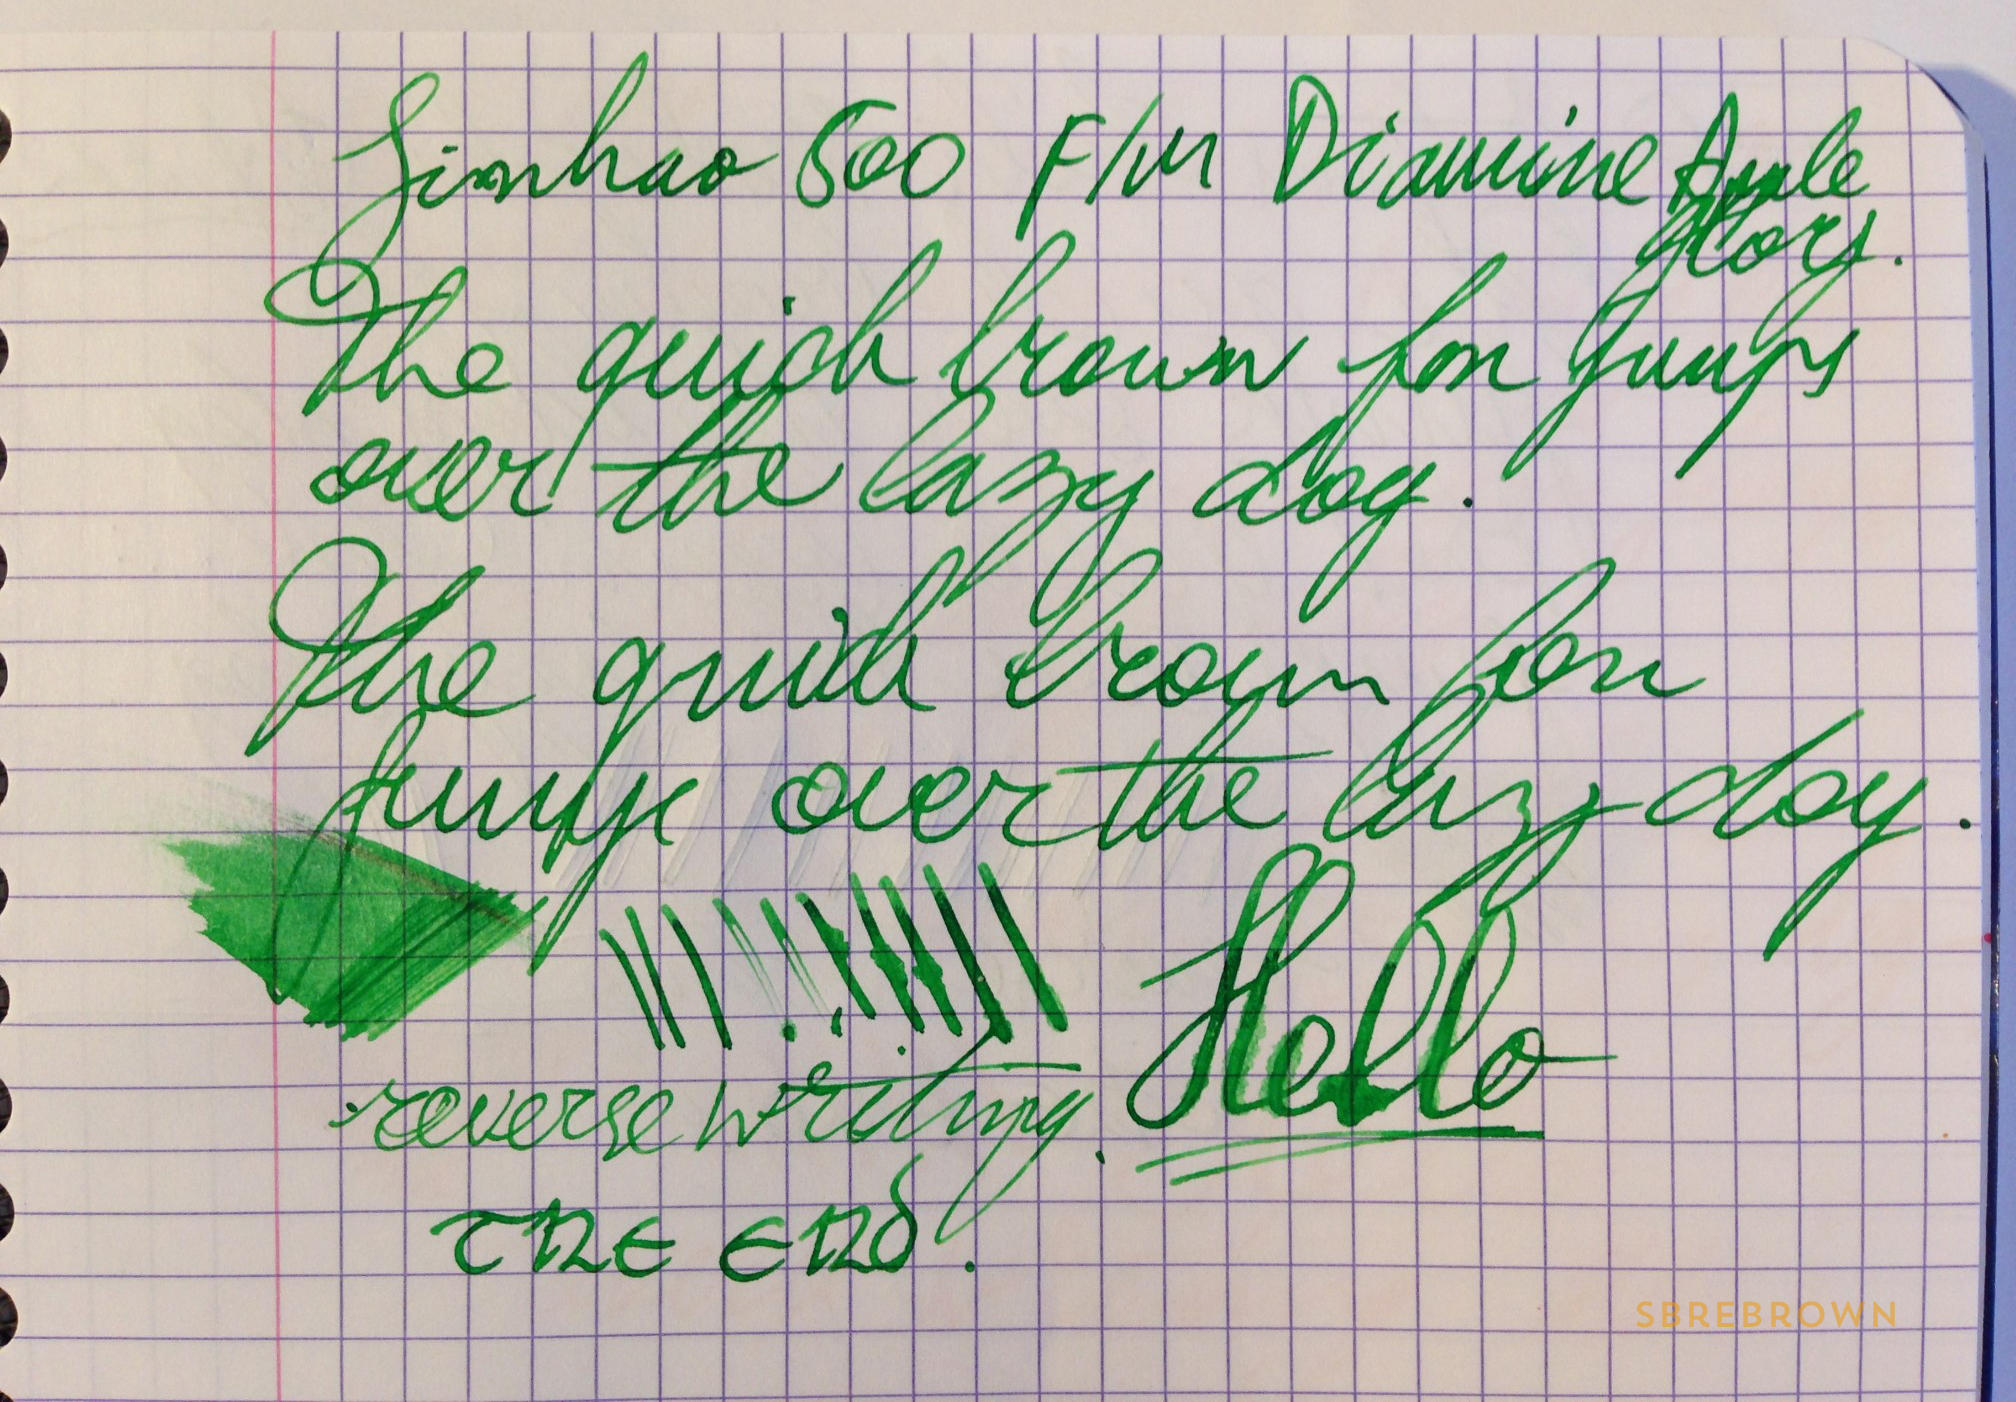 Jinhao 500 F/M Diamine Apple
Glory.
The quick brown fox jumps
over the lazy dog.
The quick brown fox
jumps over the lazy dog.
Hello
reverse writing.
THE END.
SBREBROWN